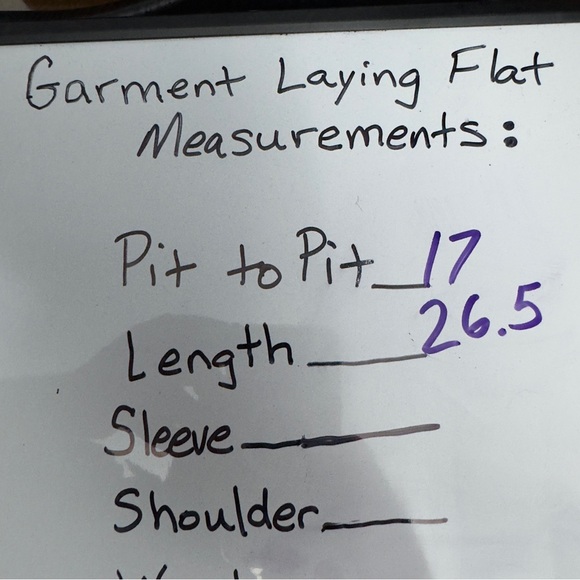 Garment Laying Flat
Measurements:
Pit to Pit 17
Length 26.5
Sleeve
Shoulder